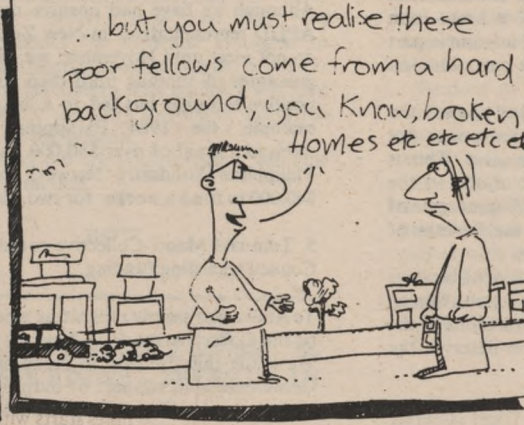 ...but you must realise these
poor fellows come from a hard
background, you know, broken
Homes etc etc etc